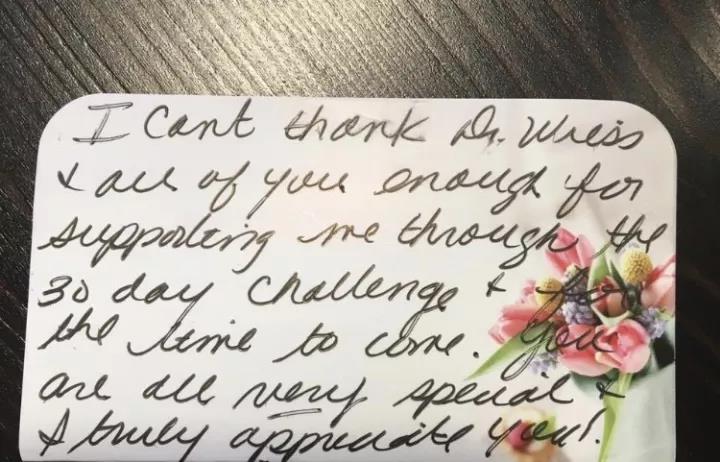 I Cant thank Dr. Wheiss
& all of you enough for
supporting me through the
30 day challenge & for
the time to come. You
are all very special &
I truly appreciate you!